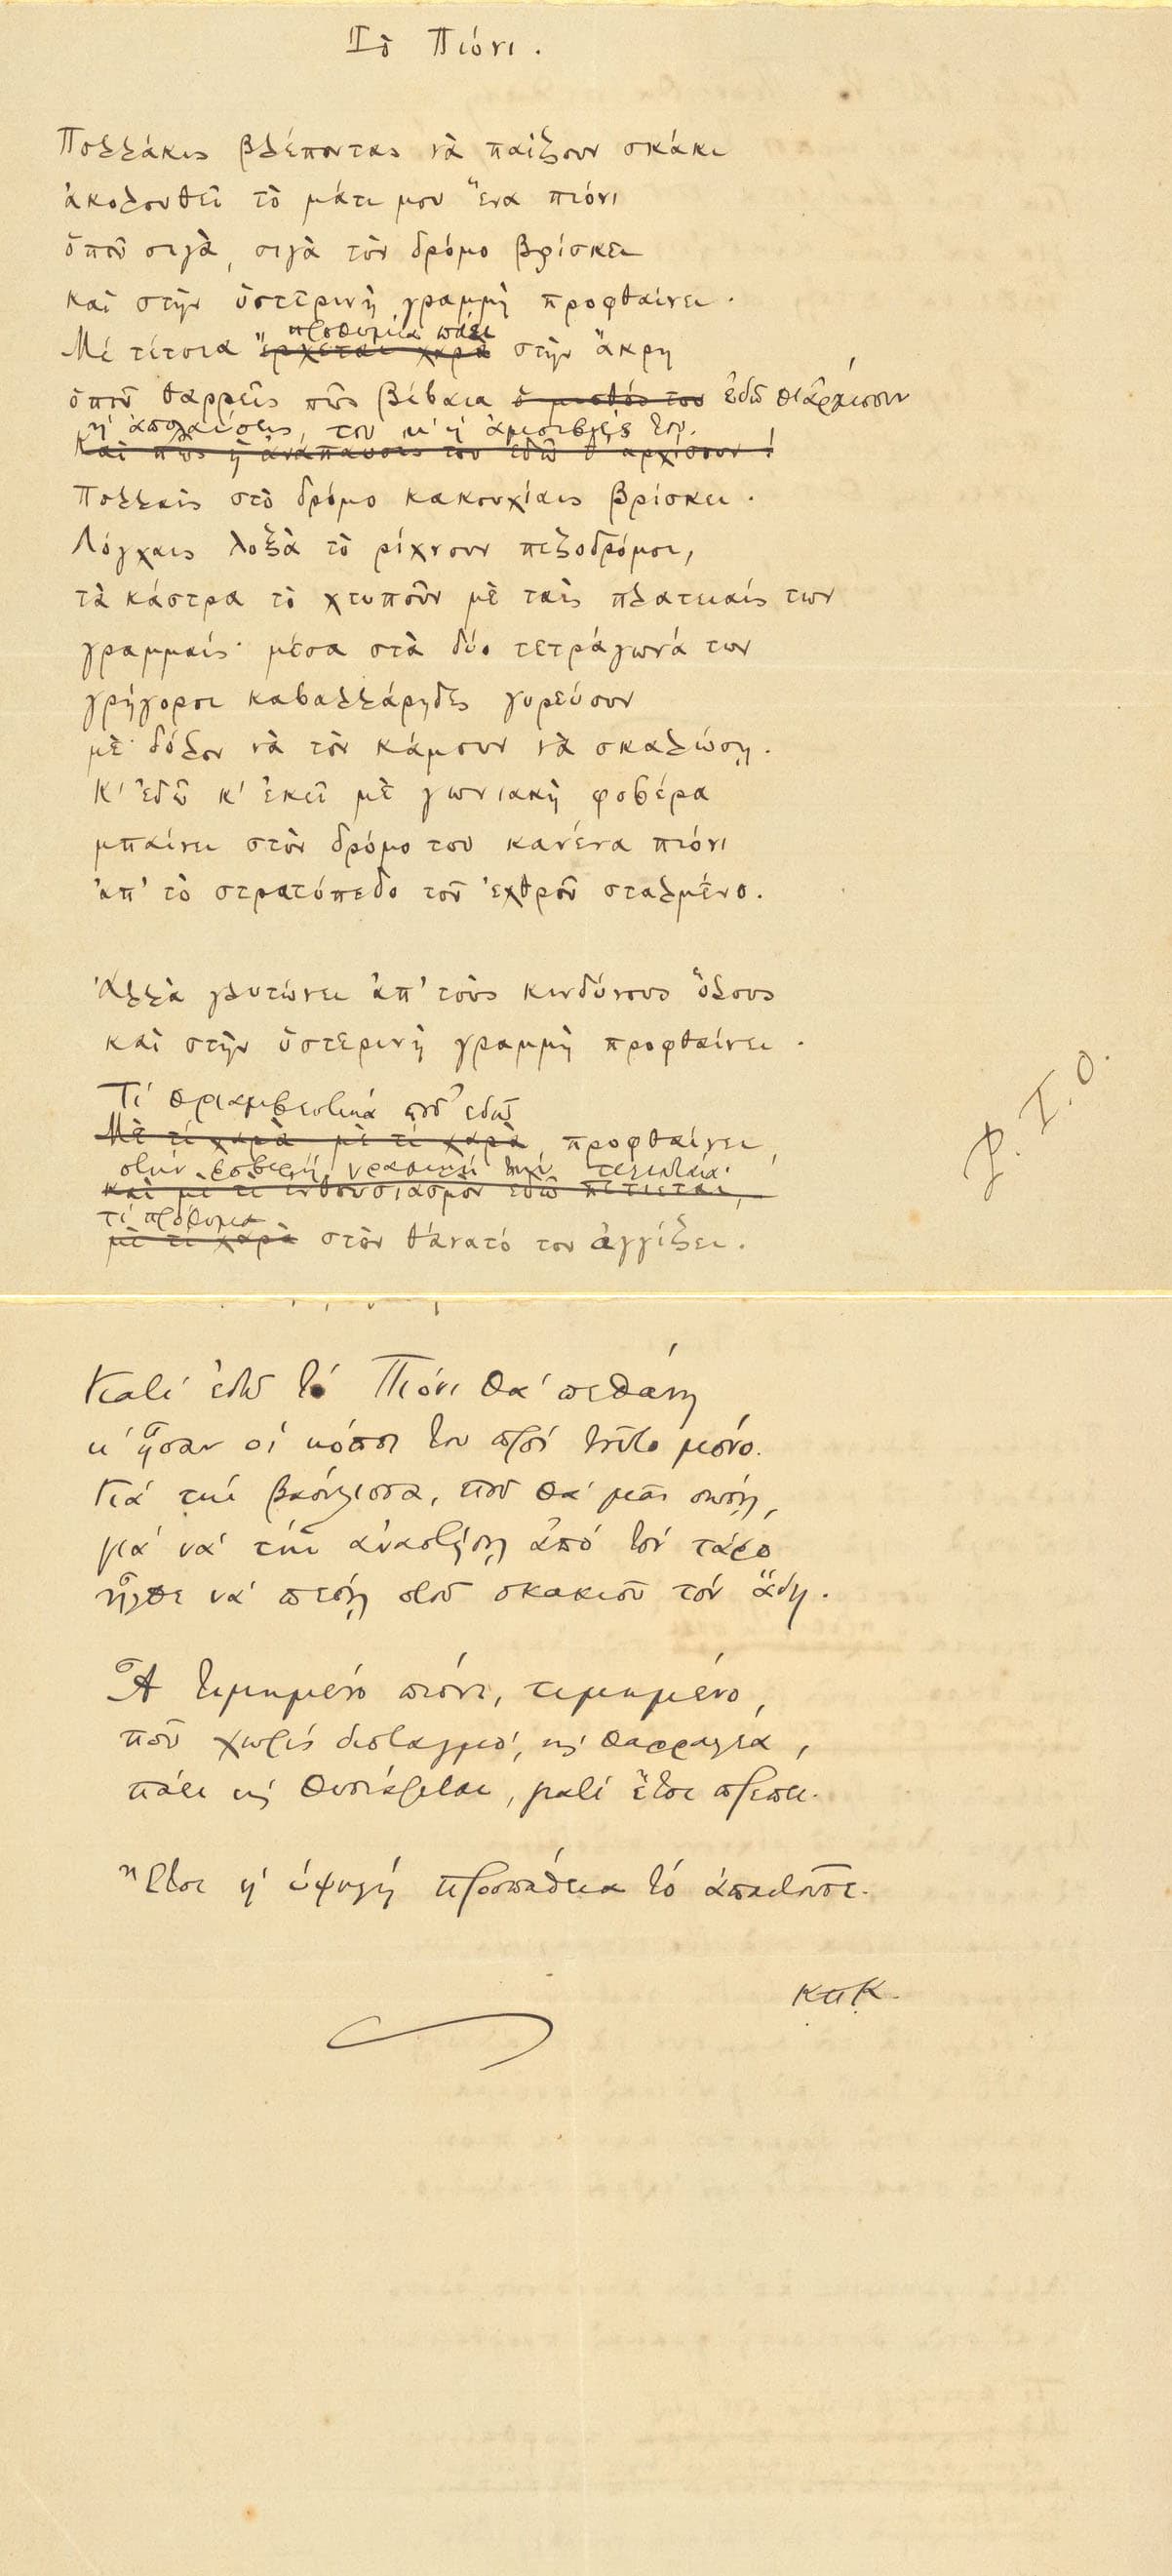 Τὸ Πιόνι.
Πολλάκις βλέποντας νὰ παίζουν σκάκι
ἀκολουθεῖ τὸ μάτι μου ἕνα πιόνι
ὁποῦ σιγὰ, σιγὰ τὸν δρόμο βρίσκει
καὶ στὴν ὑστερινὴ γραμμὴ προφθαίνει.
προθυμία πάει
Μὲ τέτοια ἔρχεται χαρὰ στὴν ἄκρη
ὁποῦ θαρρεῖς πῶς βέβαια ὁ μισθός του ἐδῶ θἀρχίσουν
ἡ ἀπολαύσεις του κ' ἡ ἀμοιβές του.
Καὶ πῶς ἡ ἀνάπαυσις του ἐδῶ θ' ἀρχίσουν!
Πολλαὶς στὸ δρόμο κακουχίαις βρίσκει.
Λόγχαις λοξὰ τὸ ρίχνουν πεζοδρόμοι,
τὰ κάστρα τὸ χτυποῦν μὲ ταὶς πλατειαίς των
γραμμαίς· μέσα στὰ δύο τετράγωνά των
γρήγοροι καβαλλάρηδες γυρεύουν
μὲ δόλον νὰ τὸν κάμουν νὰ σκαλώσῃ.
Κ' ἐδῶ κ' ἐκεῖ μὲ γωνιακὴ φοβέρα
μπαίνει στὸν δρόμο του κανένα πιόνι
ἀπ' τὸ στρατόπεδο τοῦ ἐχθροῦ σταλμένο.
Ἀλλὰ γλυτώνει ἀπ' τοὺς κινδύνους ὅλους
καὶ στὴν ὑστερινὴ γραμμὴ προφθαίνει.
Τί θριαμβευτικὰ ποῦ ἐδῶ
Μὲ τί χαρὰ μὲ τί χαρὰ προφθαίνει,
στὴν φοβερὴ γραμμὴ τὴν τελευταία·
καὶ μὲ τί ἐνθουσιασμὸν ἐδῶ πετιέται,
τί πρόθυμα
μὲ τί χαρὰ στὸν θάνατό του ἀγγίζει.
P. T. O.
Γιατὶ ἐδῶ τὸ Πιόνι θὰ πεθάνῃ
κ' ἦσαν οἱ κόποι του πρὸς τοῦτο μόνο.
Γιὰ τὴν βασίλισσα, ποῦ θὰ μᾶς σώσῃ,
γιὰ νὰ τὴν ἀναστήσῃ ἀπὸ τὸν τάφο
ἦλθε νὰ πέσῃ στοῦ σκακιοῦ τὸν ἅδη.
Ἆ τιμημένο πιόνι, τιμημένο,
ποῦ χωρὶς δισταγμό, κι
πάει κι θυσιάζεται, γιατὶ ἔτσι πρέπει.
Ἔτσι ἡ ὑψηλὴ προσπάθεια τὸ
ΚΠΚ.